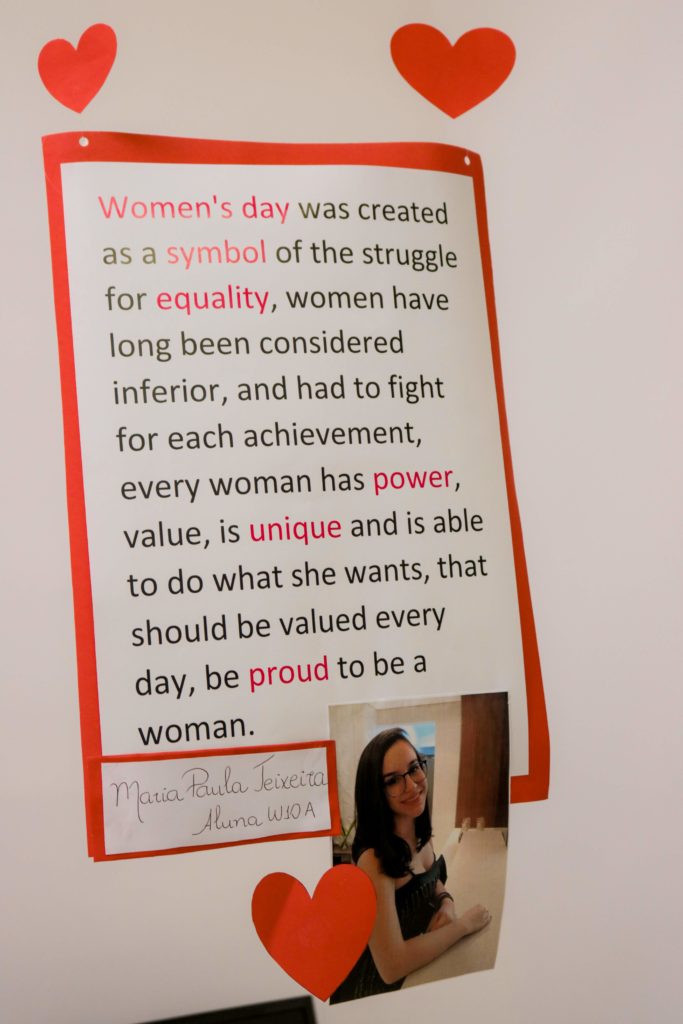 Women's day was created
as a symbol of the struggle
for equality, women have
long been considered
inferior, and had to fight
for each achievement,
every woman has power,
value, is unique and is able
to do what she wants, that
should be valued every
day, be proud to be a
woman.
Maria Paula Teixeira
Aluna W10A